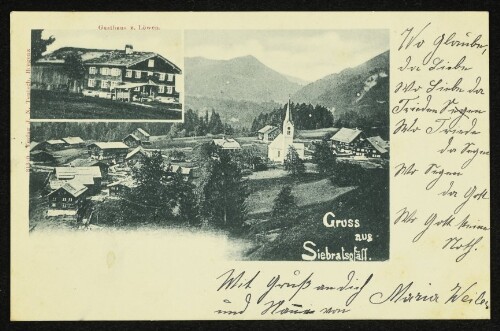 Gasthaus z. Löwen.
Wo Glaube,
da Liebe
Wo Liebe da
Frieden
Wo Friede
da Segen
Wo Segen
da Gott
Wo Gott keine
Noth.
Gruss
aus
Siebratsgfäll.
Mit Gruß an dich
und von Maria Weiler